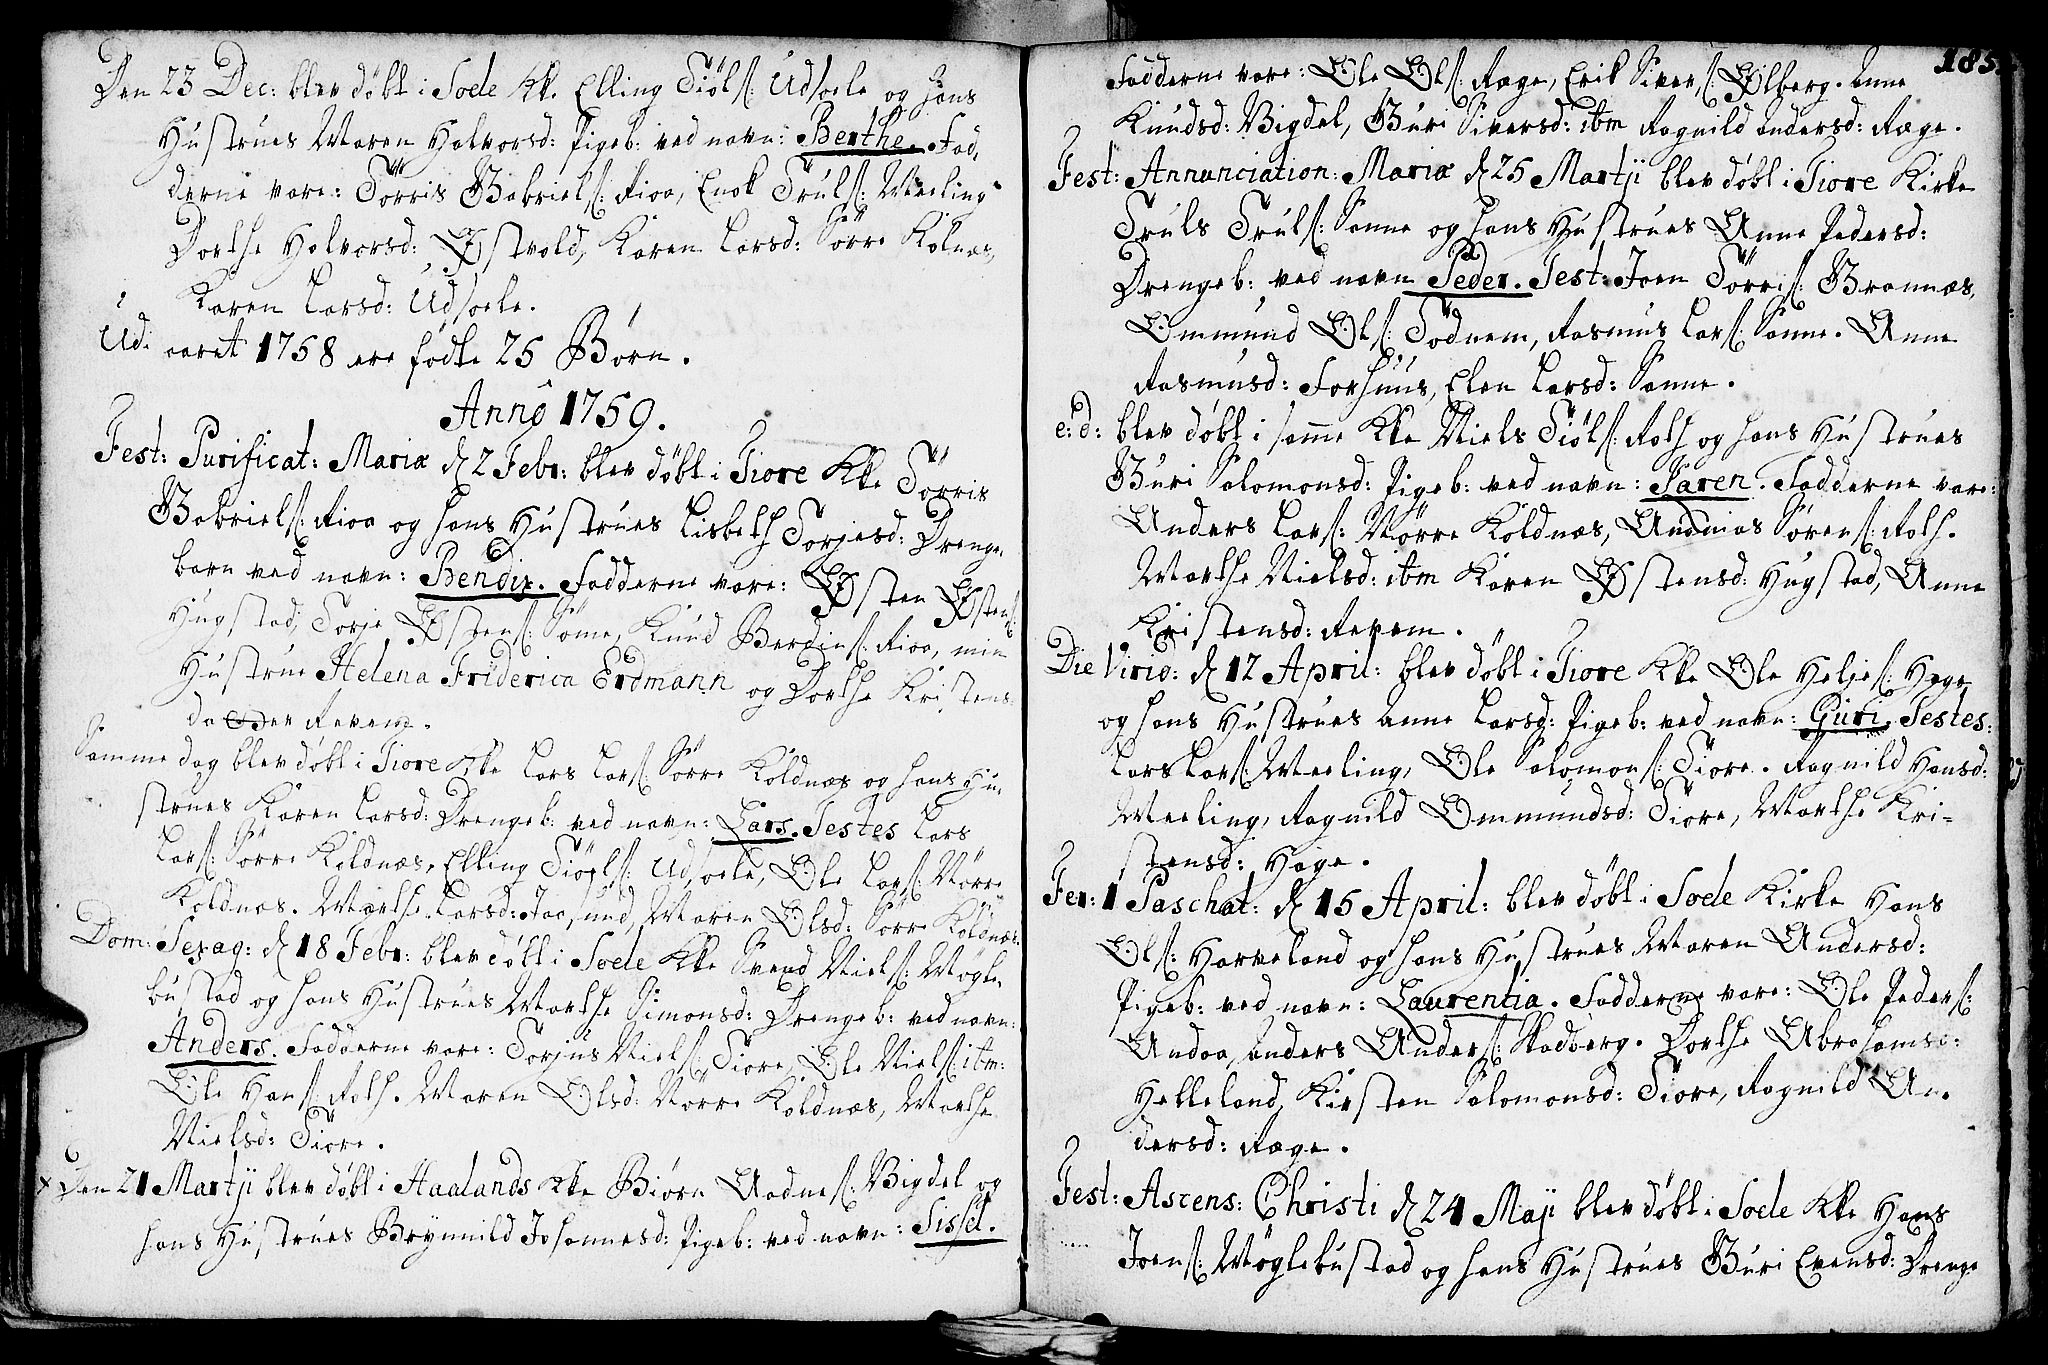 Den 23 Dec: blev døbt i Soele Kke Elling Tiøls: Udsoele og hans
Hustrues Maren Halvorsd: Pigeb: ved navn: Berthe. Fad,
derne vare: Törris Gabriels: Risa, Enok Truls: Meeling
Dorthe Halvorsd: Østvold, Karen Larsd: Sörre Kolnæs,
Karen Larsd: Udsoele.
Udi aaret 1758 ere födte 25 Børn.
Annô 1759.
Fest: Purificat: Mariæ d 2 Febr: blev døbt i Tiore Kke Törris
Gabriels: Risa og hans Hustrues Lisbeth Torjesd: Drenge,
barn ved navn: Bendix. Fadderne vare: Østen Østens:
Hugstad, Torje Østens: Söme, Knud Berdins: Risa, min
Hustrue Helena Friderica Erdmann og Dorthe Kristens-
daatter Revem.
Samme dag blev døbt i Tiore Kke Lars Lars: Sörre Koldnæs og hans Hu-
strues Karen Larsd: Drengeb: ved navn: Lars. Testes Lars
Lars: Sörre Koldnæs, Elling Tiögls: Udsoele, Ole Lars: Nörre
Koldnæs. Marthe Larsd: Jaasund, Maren Olsd: Sörre Koldnæs.
Dom: Sexag: d 18 Febr: blev døbt i Soele Kke Svend Niels: Mögle,
bustad og hans Hustrues Marthe Simonsd: Drengeb: ved navn:
Anders. Fadderne vare: Torjus Niels: Tiore, Ole Niels: ibm:
Ole Hans: Roth. Maren Olsd: Nörre Koldnæs, Marthe
Nielsd: Tiore.
x Den 21 Martji blev døbt i Haalands Kke Biörn Aadnes: Vigdel og
hans Hustrues Brynnild Johannesd: Pigeb: ved navn: Sissel.
185.
Fadderne vare: Ole Ols: Ræge, Erik Sivers: Ølberg. Anne
Knudsd: Vigdel, Guri Siversd: ibm Ragnild Andersd: Ræge.
Fest: Annunciation: Mariæ d 25 Martji blev døbt i Tiore Kirke
Truls Truls: Sanne og hans Hustrues Anne Pedersd:
Drengeb: ved navn Peder. Test: Joen Törris: Grannæs,
Ommund Ols: Södnem, Rasmus Lars: Sanne. Anne
Rasmusd: Forhuus, Elen Larsd: Sanne.
e: d: blev døbt i samme Kke Niels Tiöls: Roth og hans Hustrues
Guri Salomonsd: Pigeb: ved navn: Karen. Fadderne vare:
Anders Lars: Nörre Koldnæs, Andreas Sörens: Roth.
Marthe Nielsd: ibm Karen Østensd: Hugstad, Anne
Kristensd: Revem.
Die Virid: d 12 April: blev døbt i Tiore Kke Ole Heljes: Hage
og hans Hustrues Anne Larsd: Pigeb: ved navn: Guri. Testes:
Lars Lars: Meeling, Ole Salomons: Tiore. Ragnild Hansd:
Meeling, Ragnild Ommundsd: Tiore, Marthe Kri-
stensd: Hage.
Fer: 1 Paschat: d 15 April: blev døbt i Soele Kirke Hans
Ols: Harveland og hans Hustrues Maren Andersd:
Pigeb: ved navn: Laurentia. Fadderne vare: Ole Peders:
Andaa, Anders Anders: Skadberg. Dorthe Abrahamsd:
Helleland, Kirsten Salomonsd: Tiore, Ragnild An-
dersd: Ræge.
Fest: Ascens: Christi d 24 Maji blev døbt i Soele Kke Hans
Joens: Möglebustad og hans Hustrues Guri Evensd: Drenge